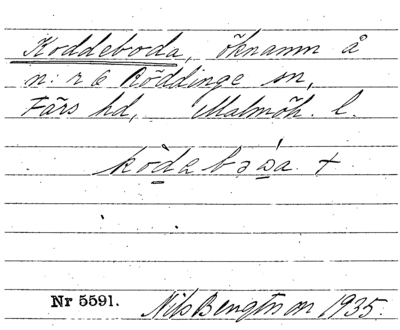 Koddeboda, öknamn å
n:r 6 Röddinge sn,
Färs hd, Malmöh. l.
kòdabɔ́sa +
Nr 5591. Nils Bengtsson 1935.